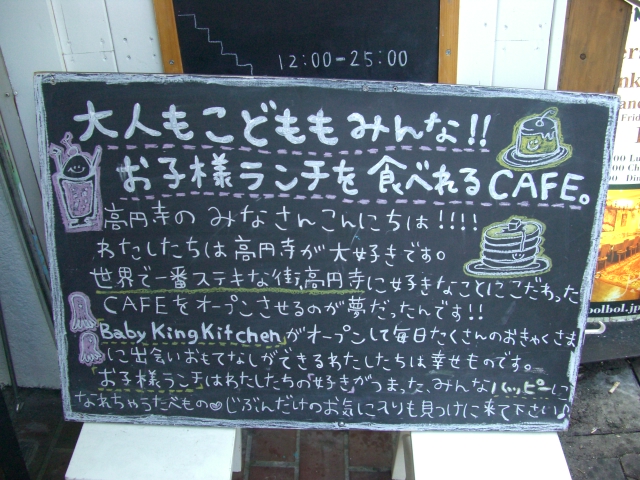 12:00-25:00
大人もこどももみんな!!
お子様ランチを食べれるCAFE。
高円寺のみなさんこんにちは!!!!
わたしたちは高円寺が大好きです。
世界で一番ステキな街高円寺に好きなことにこだわった
CAFEをオープンさせるのが夢だったんです!!
Baby King Kitchenがオープンして毎日たくさんのおきゃくさま
に出会いおもてなしができるわたしたちは幸せものです。
「お子様ランチ」はわたしたちの好きがつまった、みんなハッピーに
なれちゃうたべもの♡じぶんだけのお気に入りも見つけに来て下さい♪
bolbol.j